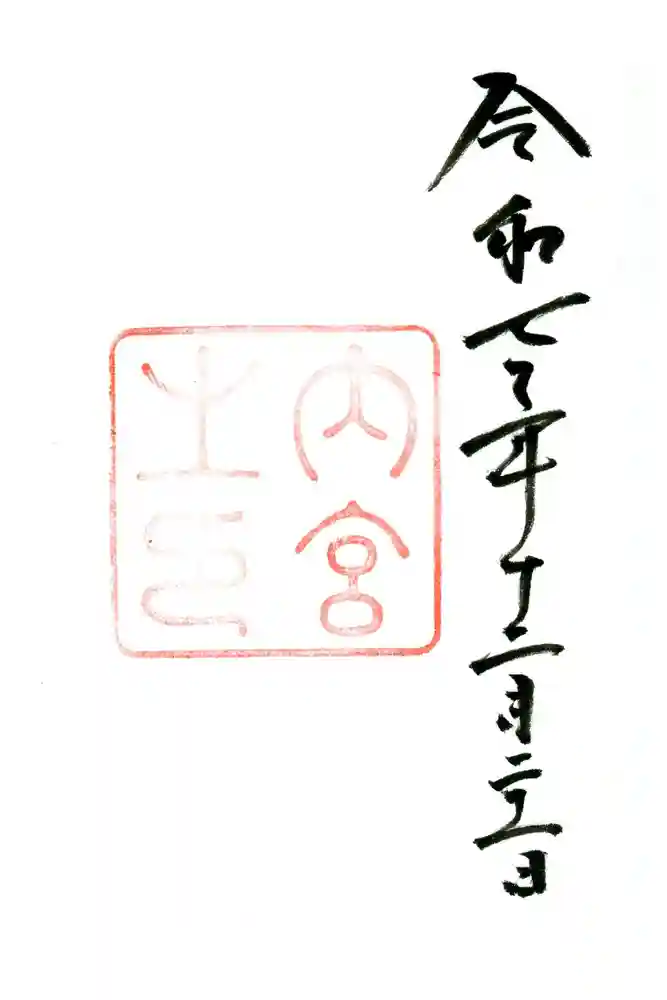 令和七年十二月二十一日
内宮
之印